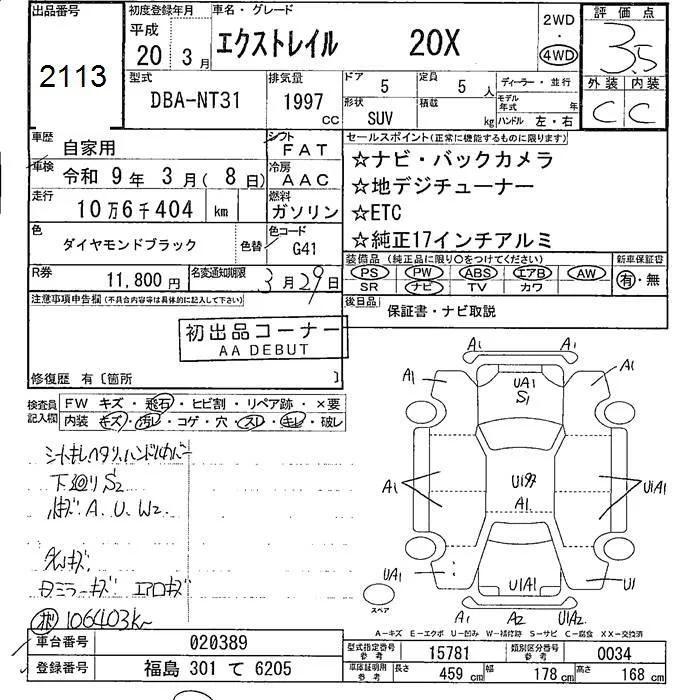 出品番号
2113
初度登録年月
平成
20 3月
車名・グレード
エクストレイル 20X
2WD
・
4WD
評価点
3.5
外装 内装
C C
型式
DBA-NT31
排気量
1997
CC
ドア
5
定員
5人
形状
SUV
積載
kg
ディーラー・並行
モデル
年式 年
ハンドル 左・右
車歴
自家用
シフト
FAT
車検
令和 9年 3月(8日)
冷房
AAC
走行
10万6千404 km
燃料
ガソリン
色
ダイヤモンドブラック
色替
色コード
G41
R券
11,800円
名変通知期限
3月29日
セールスポイント(正常に機能するものに限ります)
☆ナビ・バックカメラ
☆地デジチューナー
☆ETC
☆純正17インチアルミ
装備品(純正品に限り○をつけてください)
PS PW ABS エアB AW
SR ナビ TV カワ
新車保証書
有・無
後日品
保証書・ナビ取説
注意事項申告欄(不具合内容等は具体的に記入して下さい)
初出品コーナー
AA DEBUT
修復歴 有〔箇所 〕
検査員
記入欄
FW キズ・飛石・ヒビ割・リペア跡・×要
内装 キズ・汚レ・コゲ・穴・スレ・キレ・破レ
下廻りS2
A. U. W2
エアロキズ
106403k
A1 A1
A1 A1
UA1
S1
A1
U1A1
A1
UA1
U1A1
U1
スペア
A1 A2 U1A2
A-キズ E-エクボ U-凹み W-補修跡 S-サビ C-腐食 XX-交換済
車台番号
020389
登録番号
福島 301 て 6205
型式指定番号
参考
15781
類別区分番号
参考
0034
車庫証明用
参考
長さ 459 cm 幅 178 cm 高さ 168 cm